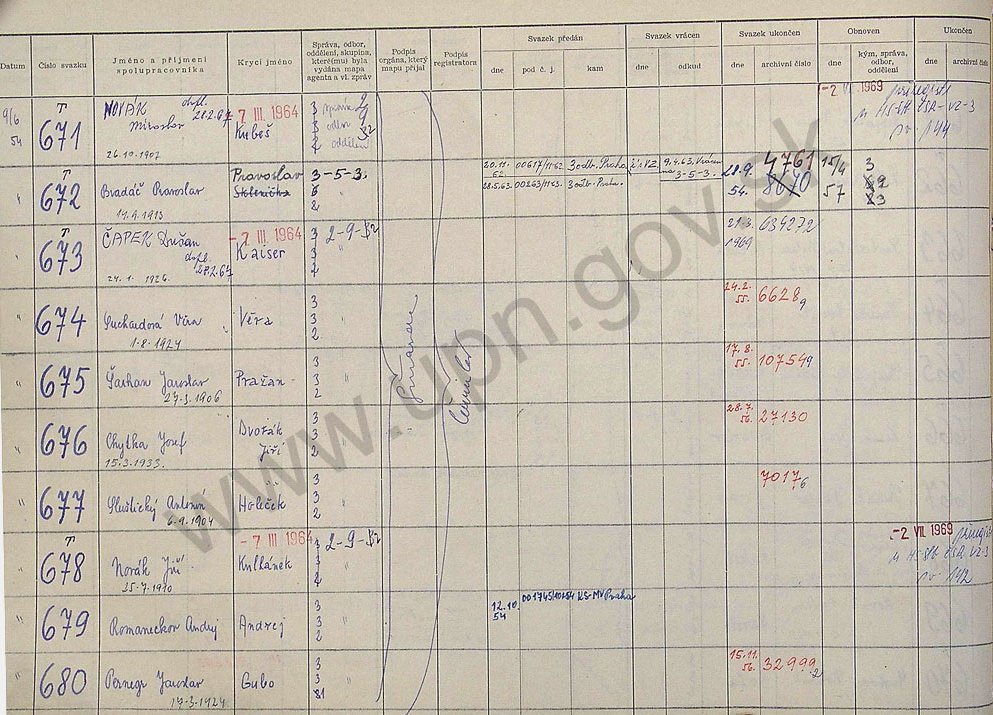 Datum
Číslo svazku
Jméno a příjmení
spolupracovníka
Krycí jméno
Správa, odbor,
oddělení, skupina,
které(mu) byla
vydána mapa
agenta a vl. zpráv
Podpis
orgána, který
mapu přijal
Podpis
registratora
Svazek předán
dne
pod č. j.
kam
Svazek vrácen
dne
odkud
Svazek ukončen
dne
archivní číslo
Obnoven
dne
kým, správa,
odbor,
oddělení
Ukončen
dne
archivní číslo
9/6
54
T
671
NOVÁK
Miroslav
28.2.64
26.10.1907
-7 III. 1964
Kubeš
3 správa 9
3 odbor
2 oddělení
-2 1969
T
672
Bradáč Pravoslav
14.9.1913
Pravoslav
3-5-3.
20.11.
62
00617/1162
3 odb. Praha
9.4.63.
3-5-3.
28.5.63.
00263/1163.
3 odb. Praha.
28.9.
54.
4761
8670
15/4
57
3
T
673
ČAPEK Dušan
28.2.64
24.1.1926.
-7 III 1964
Kaiser
3 2-9-
3
2
21.3.
1969
634272
674
Suchardová Věra
1.8.1924
Věra
3
3
2
24.2.
55.
66289
675
Čachan Jaroslav
27.3.1906
Pražan
3
3
2
17.8.
55.
107549
676
Chytka Josef
15.3.1933.
Dvořák
Jiří
3
3
2
28.7.
56.
27130
677
Sluštický Antonín
6.9.1904
Holeček
3
3
2
70176
T
678
Novák Jiří
25.7.1910
-7 III. 1964
Kulhánek
3 2-9-
3
2
-2 VII. 1969
679
Romaneckov Andrej
Andrej
3
3
2
12.10.
54
KS-MV Praha
680
Pernegr Jaroslav
17.3.1924
Gubo
3
3
15.11.
56.
329992
www.upn.gov.sk